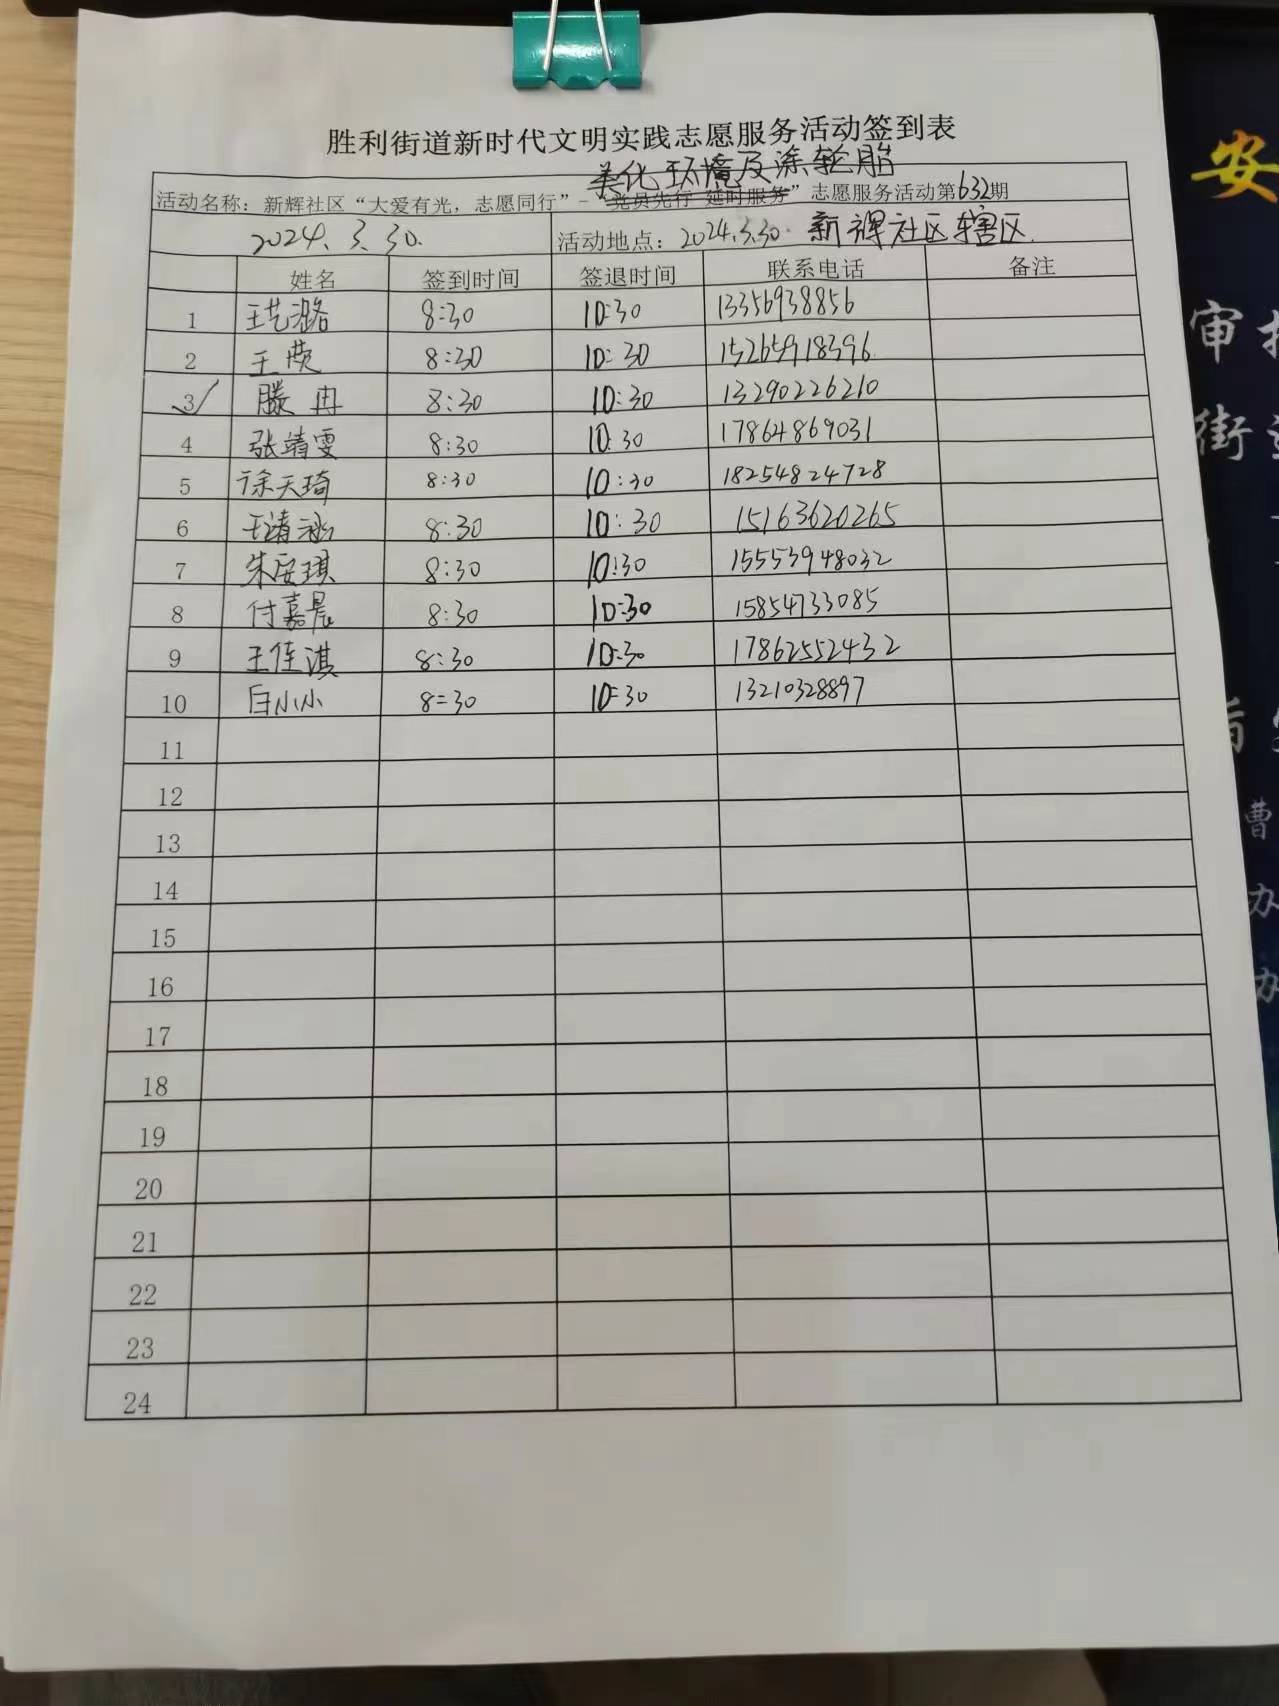 胜利街道新时代文明实践志愿服务活动签到表
美化环境及涂轮胎
活动名称：新辉社区“大爱有光，志愿同行”-“党员先行 延时服务”志愿服务活动第632期
2024.3.30. 活动地点：2024.3.30. 新辉社区辖区.
姓名 签到时间 签退时间 联系电话 备注
1 王艺潞 8:30 10:30 13356938856
2 王 8:30 10:30 15265918396
3 滕冉 8:30 10:30 13290226210
4 张靖雯 8:30 10:30 17864869031
5 徐天琦 8:30 10:30 18254824728
6 王清涵 8:30 10:30 15163620265
7 朱安琪 8:30 10:30 15553948032
8 付嘉晨 8:30 10:30 15854733085
9 王佳淇 8:30 10:30 17862552432
10 白小小 8:30 10:30 13210328897
11
12
13
14
15
16
17
18
19
20
21
22
23
24
安
审批
街道
曹
办
办